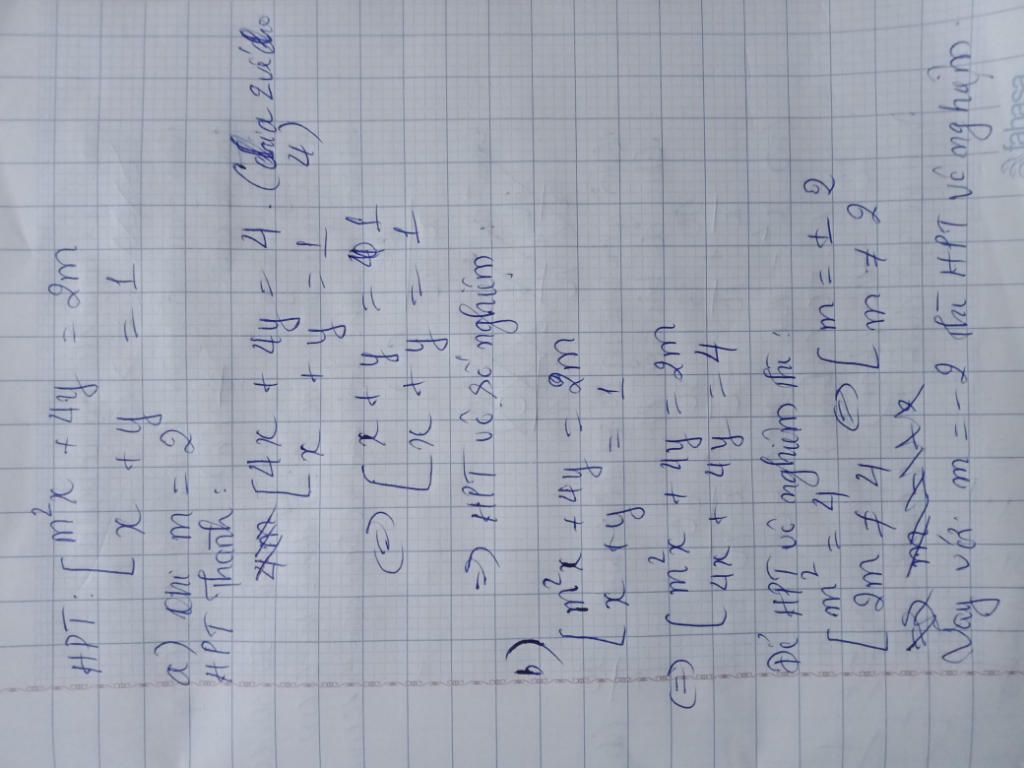 HPT: [ m²x + 4y = 2m
x + y = 1
a) Khi m = 2
HPT Thành:
[ 4x + 4y = 4. (chia 2 vế cho 4)
x + y = 1
(=) [ x + y = 1
x + y = 1
=> HPT vô số nghiệm.
b)
[ m²x + 4y = 2m
x + y = 1
(=) [ m²x + 4y = 2m
4x + 4y = 4
Để HPT vô nghiệm thì:
[ m² = 4 (=) [ m = ± 2
2m ≠ 4 m ≠ 2
Vậy với m = -2 thì HPT vô nghiệm.